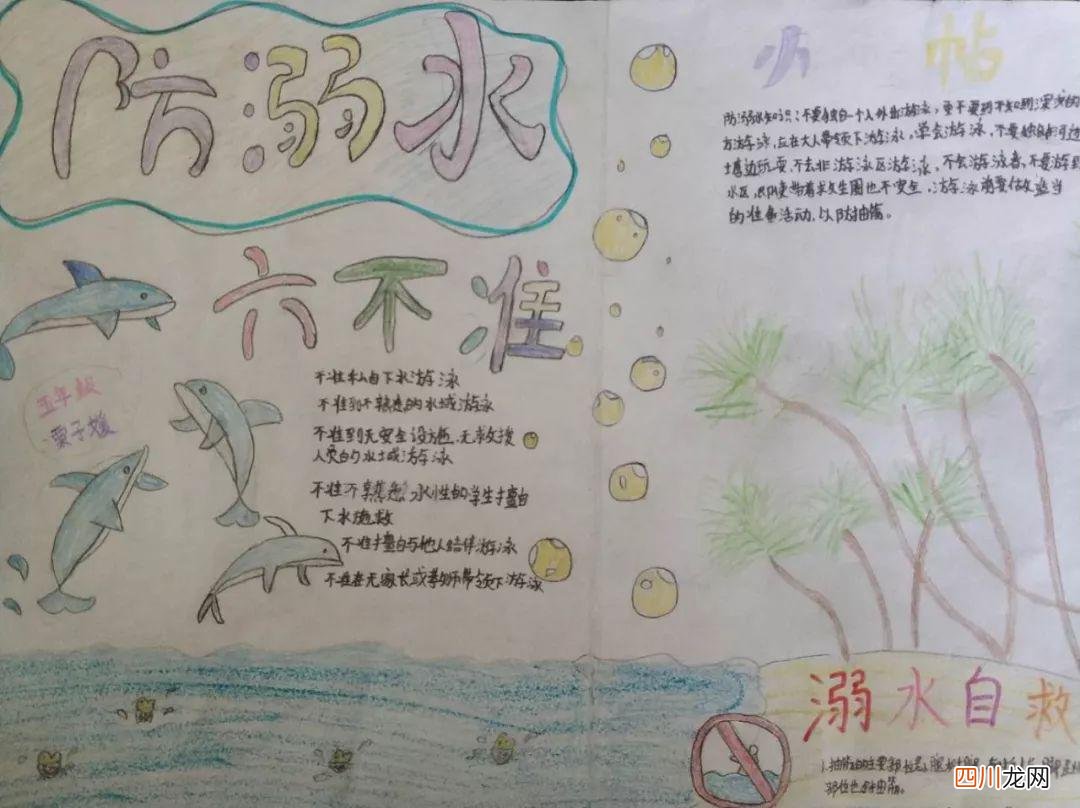 防溺水
六不准
五年级
栗子媛
不准私自下水游泳
不准到不熟悉的水域游泳
不准到无安全设施、无救援
人员的水域游泳
不准不熟悉水性的学生擅自
下水施救
不准擅自与他人结伴游泳
不准在无家长或教师带领下游泳
小 帖
防溺水知识：不要独自一个人外出游泳，更不要到不知深浅的
方游泳，应在大人带领下游泳，学会游泳，不要独自河边
边玩耍，不去非游泳区游泳，不会游泳者，不要游到
水区，即使带着救生圈也不安全，游泳前要做适当
的准备活动，以防抽筋。
溺水自救
1.抽筋的主要部位是
部位也抽筋。
四川龙网